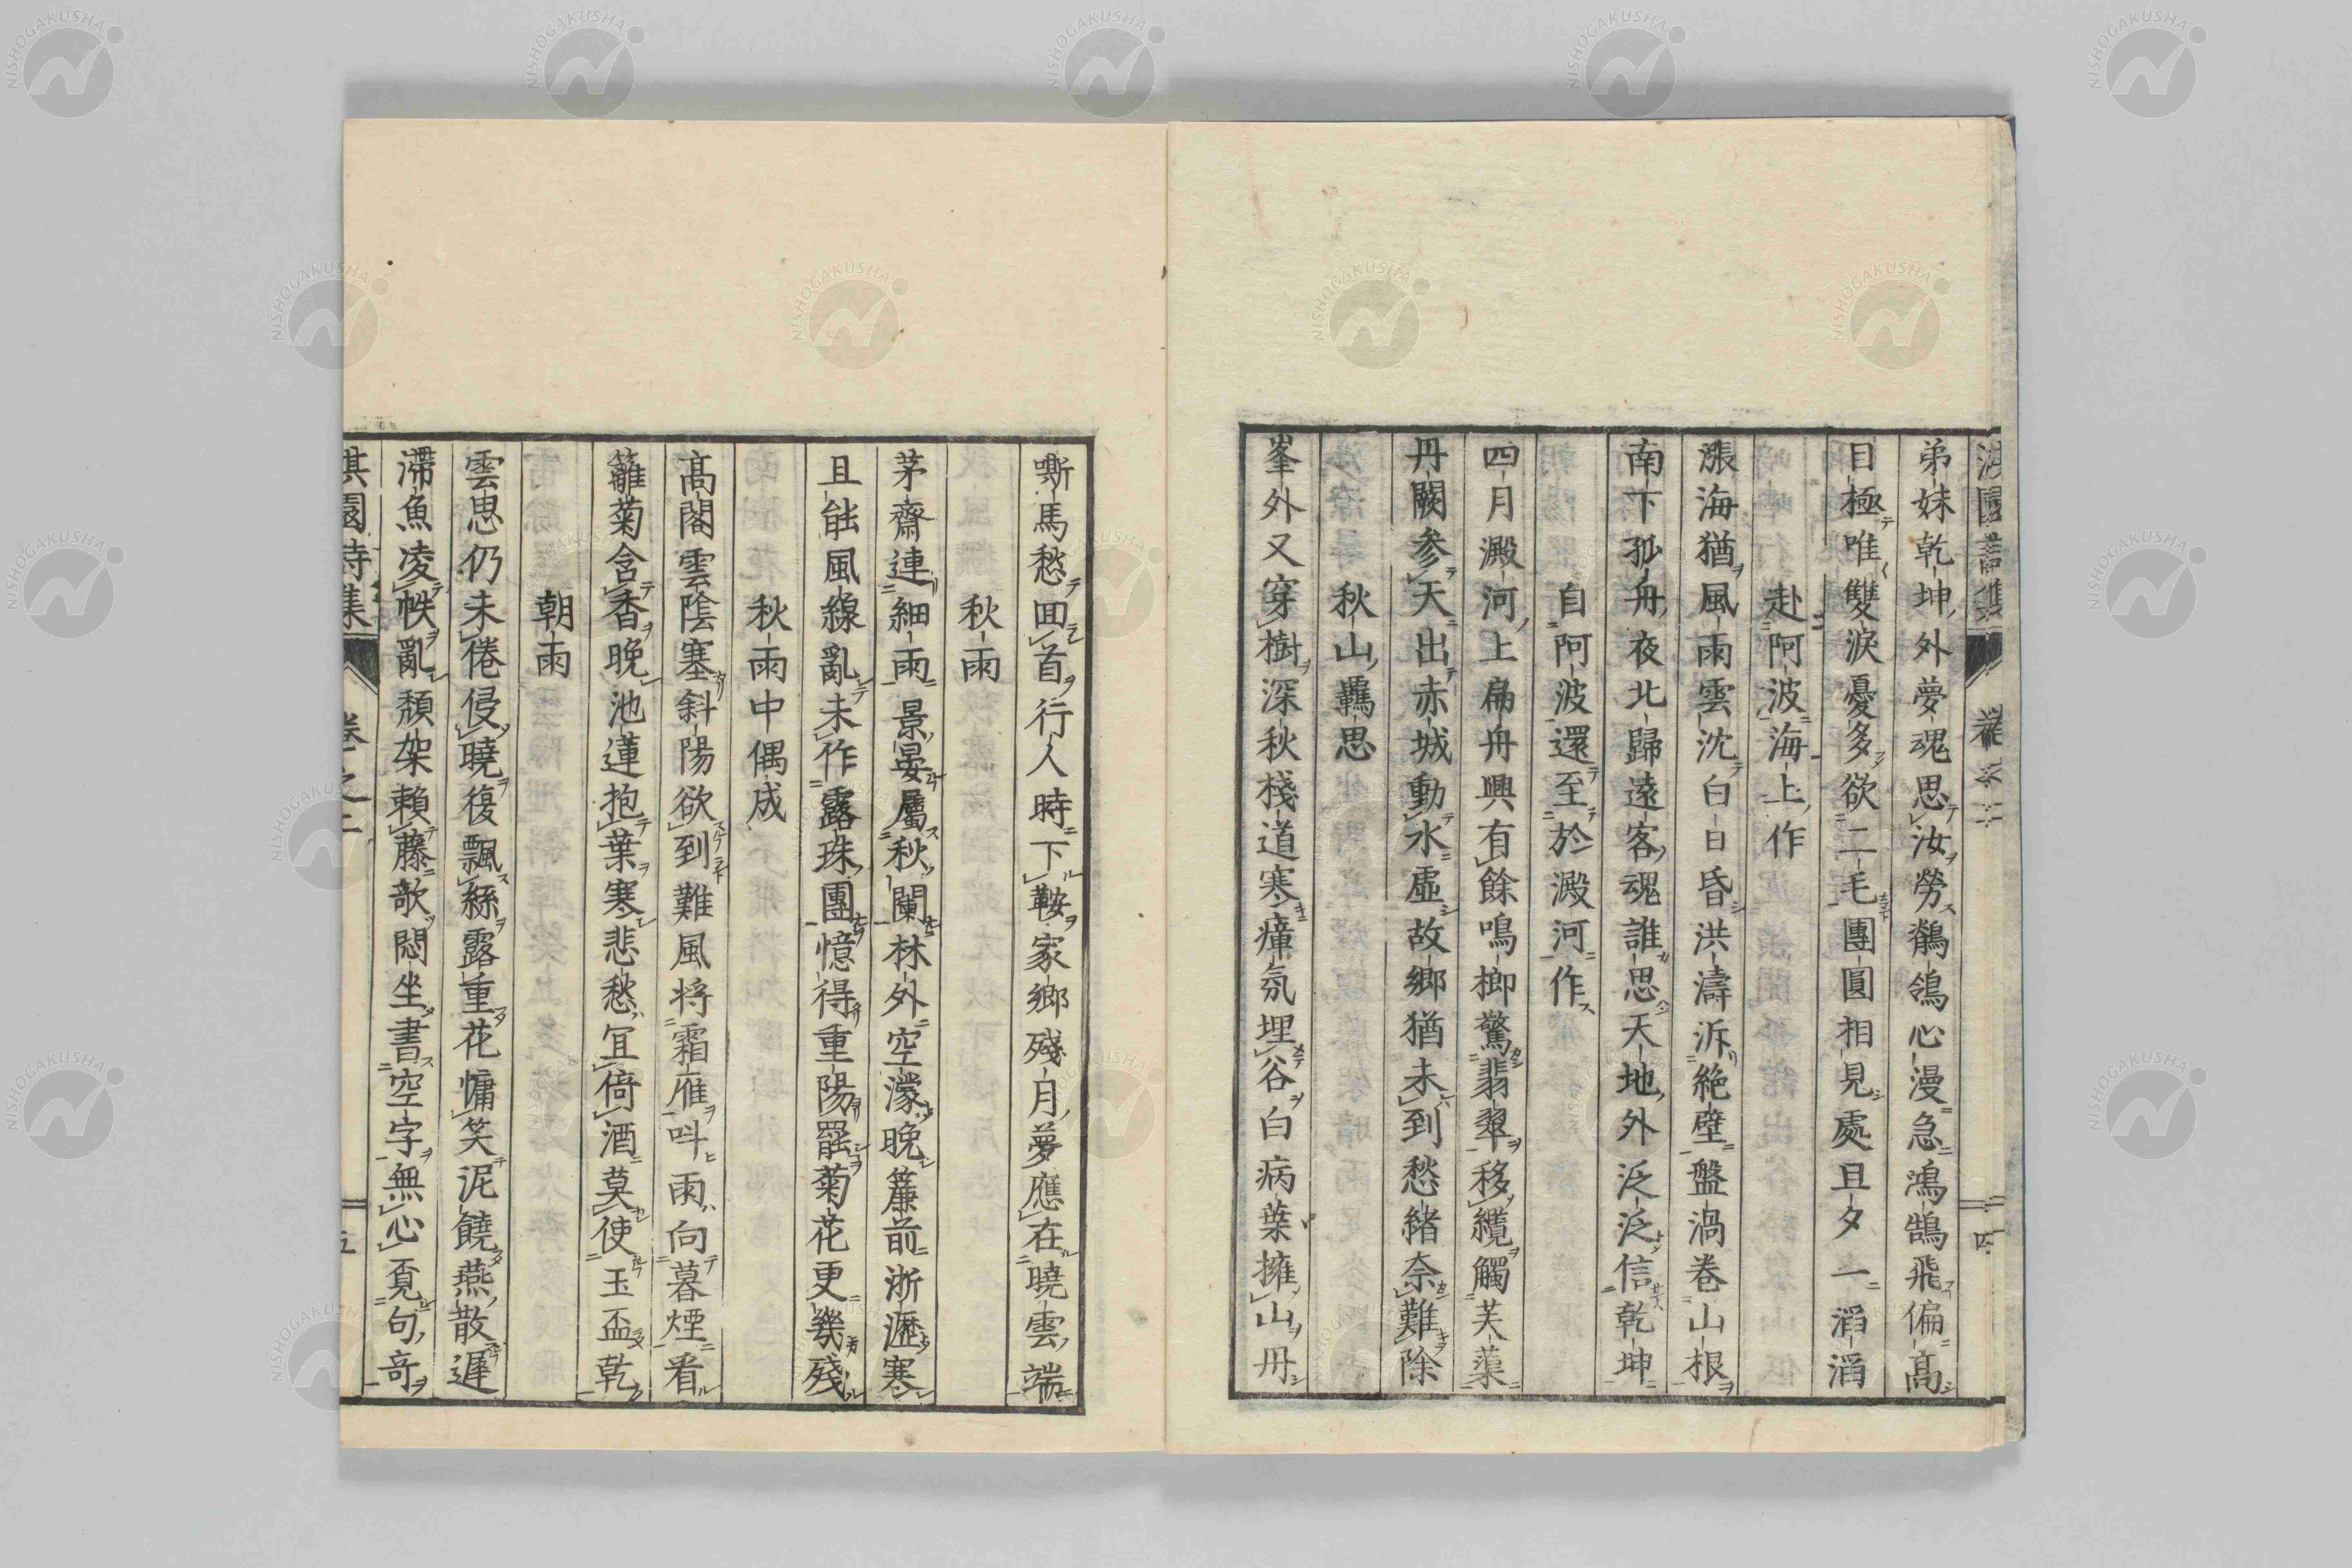 弟妹乾坤外夢魂思汝勞鶺鴒心漫急鴻鵠飛偏高
目極唯雙淚憂多欲二毛團圓相見處且夕一滔滔
赴阿波海上作
漲海猶風雨雲沈白日昏洪濤泝絶壁盤渦卷山根
南下孤舟夜北歸遠客魂誰思天地外泛泛信乾坤
自阿波還至於澱河作
四月澱河上扁舟興有餘鳴榔驚翡翠移纜觸芙蕖
丹闕參天出赤城動水虛故鄉猶未到愁緒奈難除
秋山羈思
峯外又穿樹深秋棧道寒瘴氛埋谷白病葉擁山丹
嘶馬愁回首行人時下鞍家鄉殘月夢應在曉雲端
秋雨
茅齋連細雨景晏屬秋闌林外空濛晚簾前浙瀝寒
且能風線亂未作露珠團憶得重陽罷菊花更幾殘
秋雨中偶成
高閣雲陰塞斜陽欲到難風將霜雁叫雨向暮煙看
籬菊含香晚池蓮抱葉寒悲愁冝倚酒莫使玉盃乾
朝雨
雲思仍未倦侵曉復飄絲露重花慵笑泥饒燕散遲
滯魚凌帙亂頹架賴藤欹悶坐書空字無心覓句奇
淇園詩集 卷之二 五
NISHOGAKUSHA